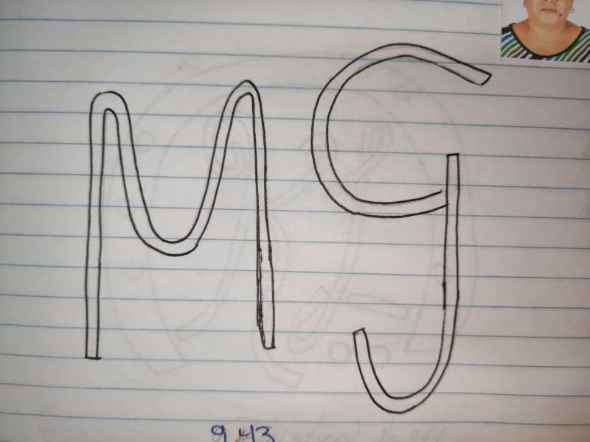 MG
9 43